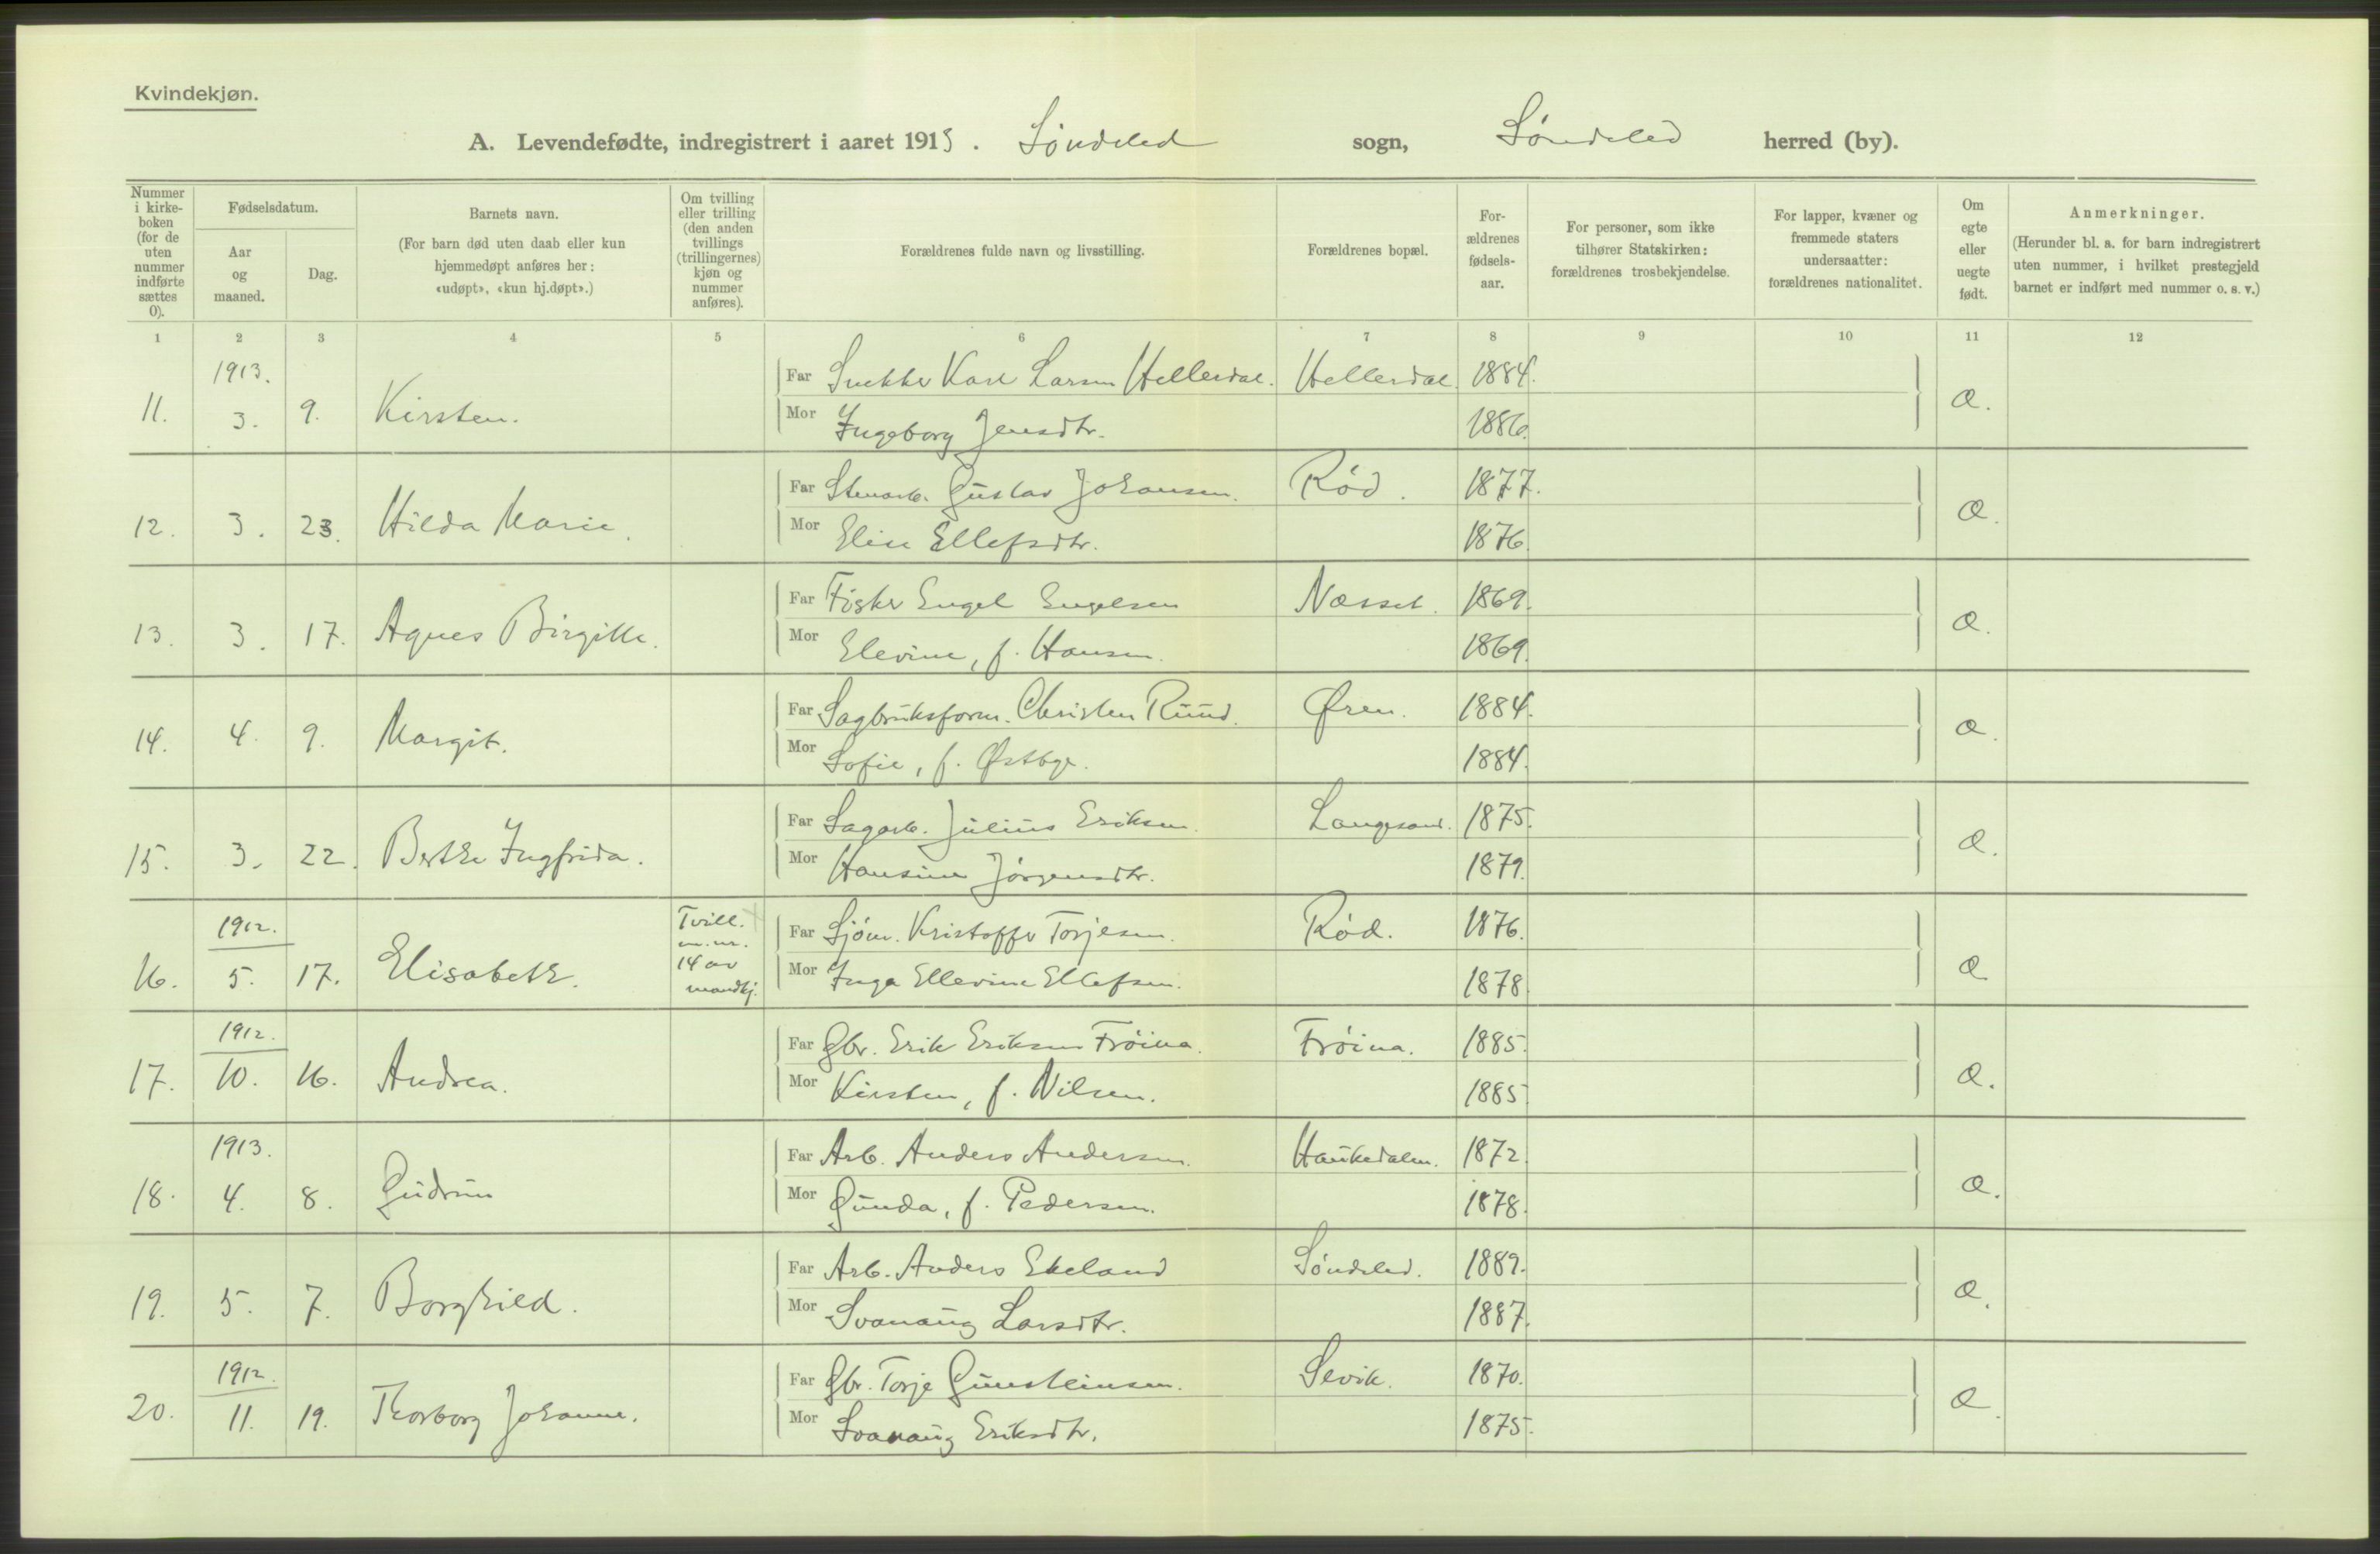 Kvindekjøn.
A. Levendefødte, indregistrert i aaret 1913. Søndeled sogn, Søndeled herred (by).
Nummer i kirke-boken (for de uten nummer indførte sættes 0).
Fødselsdatum.
Aar og maaned.
Dag.
Barnets navn.
(For barn død uten daab eller kun hjemmedøpt anføres her: «udøpt», «kun hj.døpt».)
Om tvilling eller trilling (den anden tvillings (trillingernes) kjøn og nummer anføres).
Forældrenes fulde navn og livsstilling.
Forældrenes bopæl.
For-ældrenes fødsels-aar.
For personer, som ikke tilhører Statskirken: forældrenes trosbekjendelse.
For lapper, kvæner og fremmede staters undersaatter: forældrenes nationalitet.
Om egte eller uegte født.
Anmerkninger.
(Herunder bl. a. for barn indregistrert uten nummer, i hvilket prestegjeld barnet er indført med nummer o. s. v.)
1 2 3 4 5 6 7 8 9 10 11 12
1913.
Far Snekker Karl Larsen Hellerdal. Hellerdal. 1884.
11. 3. 9. Kirsten. Æ.
Mor Ingeborg Jensdtr. 1886.
Far Stenarb. Gustav Johansen. Rød. 1877.
12. 3. 23. Hilda Marie. Æ.
Mor Elise Ellefsdtr. 1876.
Far Fisker Engel Engelsen Næsset. 1869.
13. 3. 17. Agnes Birgitte. Æ.
Mor Elevine, f. Hansen. 1869.
Far Sagbruksform. Christen Ruud. Øren. 1884.
14. 4. 9. Margit. Æ.
Mor Sofie, f. Østbye. 1884.
Far Sagarb. Julius Eriksen. Langesand. 1875.
15. 3. 22. Berthe Ingfrida. Æ.
Mor Hansine Jørgensdtr. 1879.
1912.
Tvill. m. nr. 14 av mandkj.
Far Sjøm. Kristoffer Torjesen. Rød. 1876.
16. 5. 17. Elisabeth. Æ
Mor Inga Ellevine Ellefsen. 1878.
1912.
Far Gbr. Erik Eriksen Frøina. Frøina. 1885.
17. 10. 16. Andrea. Æ.
Mor Kirsten, f. Nilsen. 1885
1913.
Far Arb. Anders Andersen. Haukedalen. 1872.
18. 4. 8. Gudrun Æ.
Mor Gunda, f. Pedersen. 1878.
Far Arb. Anders Ekeland Søndeled. 1889.
19. 5. 7. Borghild. Æ.
Mor Svanaug Larsdtr. 1887.
1912.
Far Gbr. Torje Gunsteinsen. Sevik. 1870.
20. 11. 19. Thorborg Johanne. Æ.
Mor Svanaug Eriksdtr. 1875.